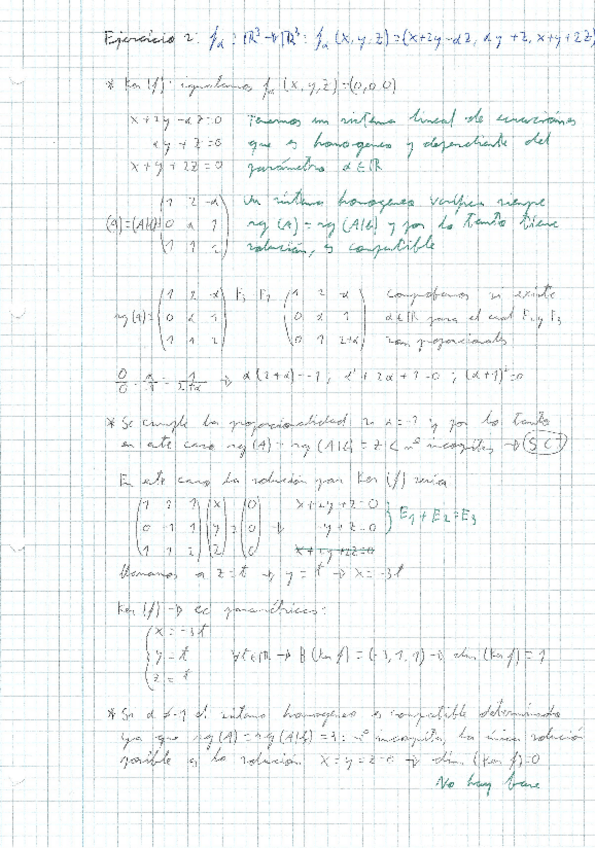 Ejercicio 2: fα: ℝ³→ℝ³: fα(x,y,z)=(x+2y-αz, αy+z, x+y+2z)
* Ker(f): igualamos fα(x,y,z)=(0,0,0)
x+2y-αz=0 Tenemos un sistema lineal de ecuaciones
αy+z=0 que es homogéneo y dependiente del
x+y+2z=0 parámetro α∈ℝ
(1 2 -α) Un sistema homogéneo verifica siempre
(0 α 1) rg(A)=rg(A|b) y por lo tanto tiene
(1 1 2) solución, es compatible
(1 2 -α) F1 F3 (1 2 -α) comprobamos si existe
(0 α 1) (0 α 1) α∈ℝ para el cual F2 y F3
(1 1 2) (0 1 2+α) son proporcionales
α(2+α)=-1; α²+2α+1=0; (α+1)²=0
* Se cumple la proporcionalidad si α=-1 y por lo tanto
en este caso rg(A)=rg(A|b)=2<nº incógnitas → SCI
En este caso la solución para Ker(f) sería
x+2y+z=0
y+z=0 E1+E2=E3
x+y+2z=0
Llamamos a z=t → y=t → x=-3t
Ker(f) → ec paramétricas:
x=-3t
y=t ∀t∈ℝ → B(Ker f)=(-3,1,1) → dim(Ker f)=1
z=t
* Si α≠-1 el sistema homogéneo es compatible determinado
ya que rg(A)=rg(A|b)=3=nº incógnitas, la única solución
posible es la solución x=y=z=0 → dim(Ker f)=0
No hay base